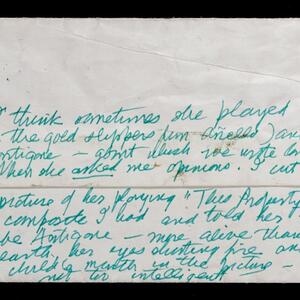 think sometimes she played
the gold slippers (un anello) an
Antigone – don't blush we wrote
When she asked me opinions. I cut
picture of her playing "This Property
composite I had and told her
be Antigone – more alive than
earth, her eyes shooting fire an
mouth in the picture –
not too intelligent